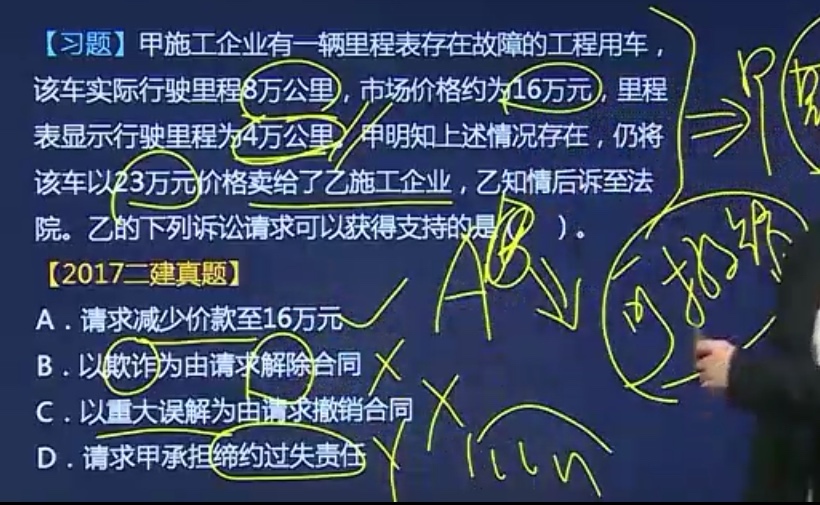 【习题】甲施工企业有一辆里程表存在故障的工程用车，
该车实际行驶里程8万公里，市场价格约为16万元，里程
表显示行驶里程为4万公里。甲明知上述情况存在，仍将
该车以23万元价格卖给了乙施工企业，乙知情后诉至法
院。乙的下列诉讼请求可以获得支持的是（　）。
【2017二建真题】
A．请求减少价款至16万元
B．以欺诈为由请求解除合同
C．以重大误解为由请求撤销合同
D．请求甲承担缔约过失责任
A
可撤销